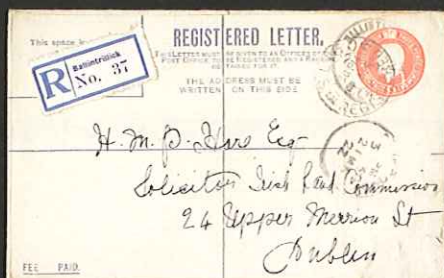 REGISTERED LETTER.
This space is
THIS LETTER MUST BE GIVEN TO AN OFFICER OF THE
POST OFFICE TO BE REGISTERED AND A RECEIPT
OBTAINED FOR IT.
THE ADDRESS MUST BE
WRITTEN ON THIS SIDE
R
No. 37
H. M. P. Hare Esq
Solicitor Irish Land Commission
24 Upper Merrion St
Dublin
FEE PAID.